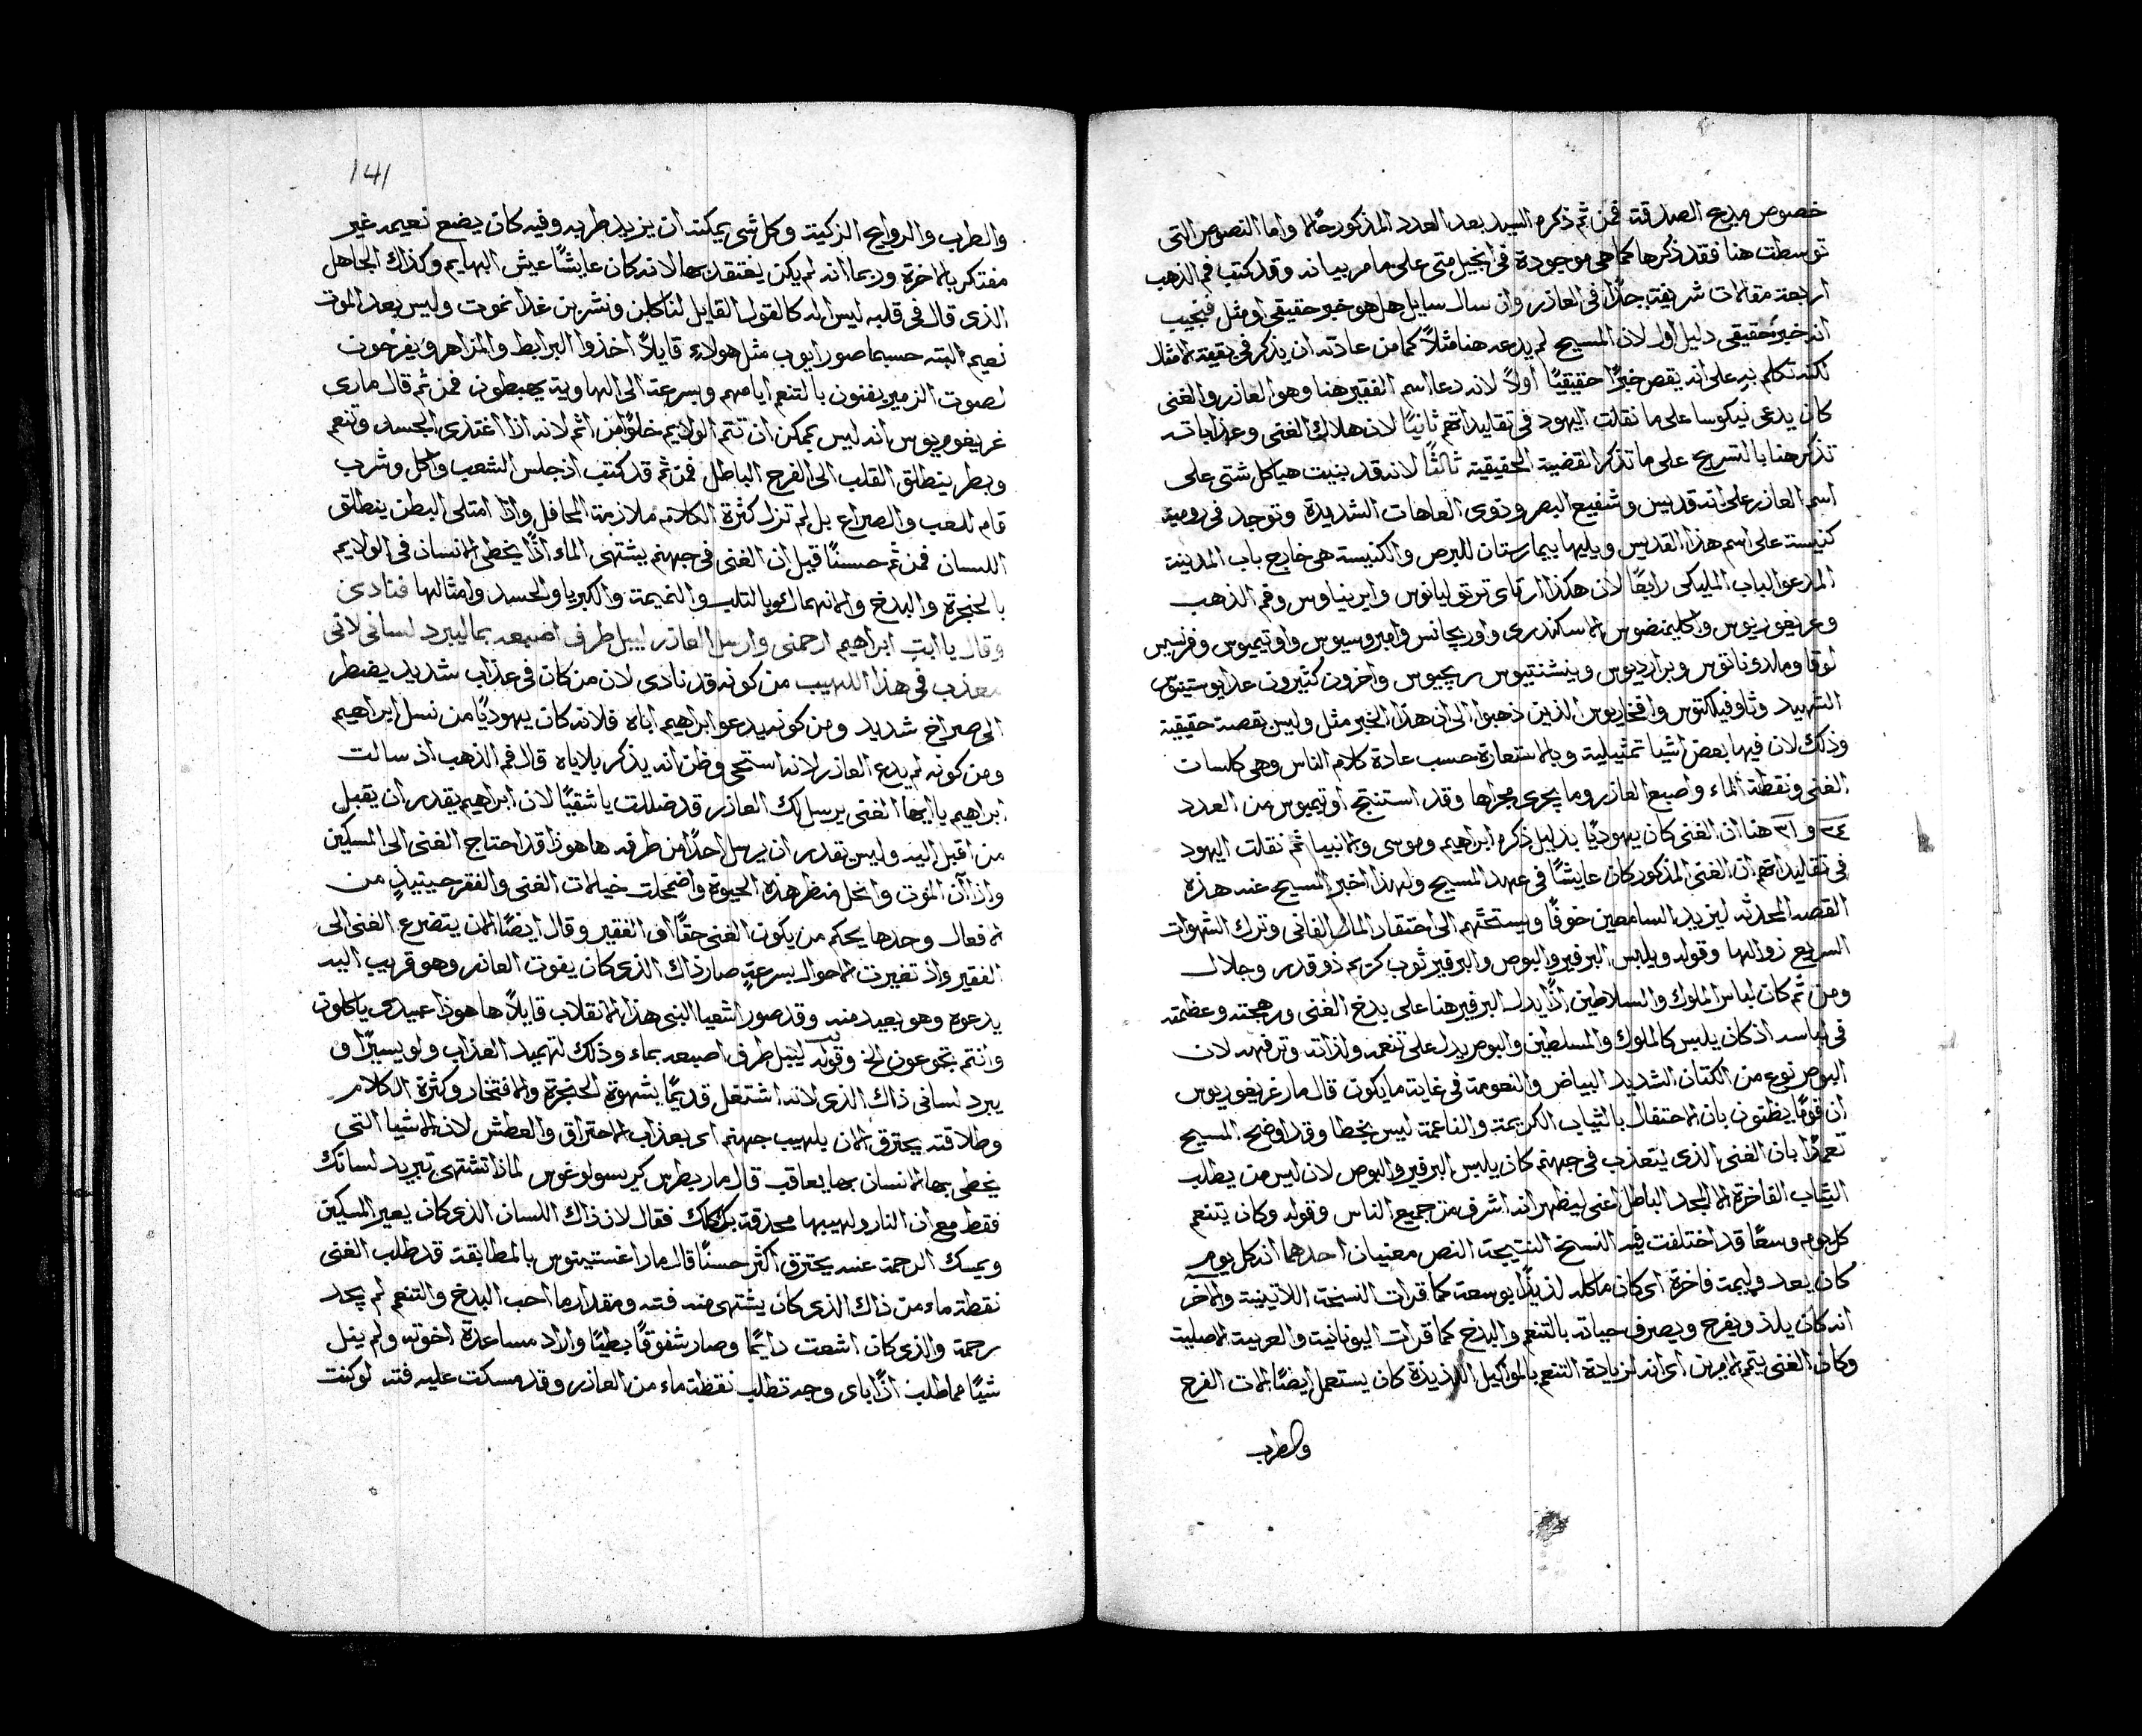 خصوص مديح الصدقة فمن ثم ذكره السيد بعد العدد المذكور حالاً واما النصوص التى
توسطت هنا فقد ذكرها كما هى موجودة فى انجيل متى على ما مر بيانه وقد كتب فم الذهب
اربعة مقالات شريفة جدًا فى العازر وان سال سايل هل هو خبر حقيقى او مثل فنجيب
انه خبر حقيقى دليل اول لان المسيح لم يدعه هنا مثلاً كما من عادته ان يذكر فى بقية الامثال
لكنه تكلم به على انه يقص خبرًا حقيقيًا اولاً لانه دعا اسم الفقير هنا وهو العازر والغنى
كان يدعى نيكوسا على ما نقلت اليهود فى تقليداتهم ثانيًا لان هلاك الغنى وعذاباته
تذكر هنا بالتسريح على ما تذكر القضية الحقيقية ثالثًا لانه قد بنيت هياكل شتى على
اسم العازر على انه قديس وشفيع البرص وذوى العاهات الشديدة وتوجد فى رومية
كنيسة على اسم هذا القديس ويليها بيمارستان للبرص والكنيسة هى خارج باب المدينة
المدعو الباب المليكى رابعًا لان هكذا ارتاى ترتوليانوس وايريناوس وفم الذهب
وغريغوريوس واكليمنضوس الاسكندرى واوريجانس وامبروسيوس واوتيميوس وفرسيس
لوقا ومالدوناتوس وبراديوس وينشنتيوس ريجيوس واخرون كثيرون عدا يوستينوس
الشهيد وثاوفيلكتوس وافخاريوس الذين ذهبوا الى ان هذا الخبر مثل وليس بقصة حقيقية
وذلك لان فيها بعض اشيا تمثيلية وبالاستعارة حسب عادة كلام الناس وهى كلسات
الغنى ونقطة الماء واصبع العازر وما يجرى مجراها وقد استنتج اوتيميوس من العدد
٢٤ و ٣١ هنا ان الغنى كان يهوديًا بدليل ذكره ابراهيم وموسى والانبيا ثم نقلت اليهود
فى تقليداتهم ان الغنى المذكور كان عايشًا فى عهد المسيح ولهذا اخبر المسيح عنه هذه
القصة المحدثه ليزيد السامعين خوفًا ويستحثهم الى احتقار المال الفانى وترك الشهوات
السريع زوالها وقوله ويلبس البرفير والبوص والبرفير ثوب كريم ذو قدر وجلال
ومن ثم كان لباس الملوك والسلاطين اذًا يدل البرفير هنا على بدخ الغنى ورهجته وعظمته
فى لباسه اذ كان يلبس كالملوك والمسلطين والبوص يدل على تنعمه ولذاته وترفهه لان
البوص نوع من الكتان الشديد البياض والنعومة فى غاية ما يكون قال مار غريغوريوس
ان قومًا يظنون بان الاحتفال بالثياب الكريمة والناعمة ليس بخطا وقد اوضح المسيح
تعمدًا بان الغنى الذى يتعذب فى جهنم كان يلبس البرفير والبوص لان ليس من يطلب
الثياب الفاخرة الا للمجد الباطل اعنى ليظهر انه اشرف من جميع الناس وقوله وكان يتنعم
كل يوم وسعًا قد اختلفت فيه النسخ النتيجة النص معنيان احدهما انه كل يوم
كان يعد وليمة فاخرة اى كان ماكله لذيذًا بوسعة كما قرات النسخة اللاتينية والاخر
انه كان يلذ ويفرح ويصرف حياته بالتنعم والبدخ كما قرات اليونانية والعربية الاصلية
وكان الغنى يتمم الامرين اى انه لزيادة التنعم بالمواكيل اللذيذة كان يستعمل ايضًا الات الفرح
والطرب
141
والطرب والروايح الزكية وكل شى يمكنه ان يزيد طربه وفيه كان يضع نعيمه غير
مفتكر بالاخرة وربما انه لم يكن يعتقد بها لانه كان عايشًا عيش البهايم وكذلك الجاهل
الذى قال فى قلبه ليس اله كالقول القايل لناكلن ونشربن غدا نموت وليس بعد الموت
نعيم البته حسبما صور ايوب مثل هولاء قايلاً اخذوا البرابط والمزاهر ويفرحون
لصوت الزمير يفنون بالتنعم ايامهم وبسرعة الى الهاوية يهبطون فمن ثم قال مارى
غريغوريوس انه ليس يمكن ان تتم الولايم خلوًا من اثم لانه اذا اغتذى الجسد وتنعم
وبطر ينطلق القلب الى الفرح الباطل فمن ثم قد كتب اذ جلس الشعب واكل وشرب
قام للعب والصراع بل لم تزل كثرة الكلام ملازمة المحافل واذا امتلى البطن ينطلق
اللسان فمن ثم حسنًا قيل ان الغنى فى جهنم يشتهى الماء اذًا يخطى الانسان فى الولايم
بالحنجرة والبدخ والانهماك وبالثلب والنميمة والكبريا والحسد وامثالها فنادى
وقال يا ابت ابراهيم ارحمنى وارسل العازر ليبل طرف اصبعه بما ليبرد لسانى لانى
معذب فى هذا اللهيب من كونه قد نادى لان من كان فى عذاب شديد يضطر
الى صراخ شديد ومن كونه يدعو ابراهيم اباه فلانه كان يهوديًا من نسل ابراهيم
ومن كونه لم يدع العازر لانه استحى وظن انه يذكر بلاياه قال فم الذهب اذ سالت
ابراهيم يا ايها الغنى يرسل لك العازر قد ضللت يا شقيًا لان ابراهيم يقدر ان يقبل
من اقبل اليه وليس يقدر ان يرسل احدًا من طرفه ها هوذا قد احتاج الغنى الى المسكين
واذا آن الموت وانحل منظر هذه الحيوة واضمحلت خيالات الغنى والفقر حينيذٍ من
الافعال وحدها يحكم من يكون الغنى حقًا او الفقير وقال ايضًا الان يتضرع الغنى الى
الفقير واذ تغيرت الاحوال بسرعةٍ صار ذاك الذى كان يفوت العازر وهو قريب اليه
يدعوه وهو بعيد منه وقد صور اشعيا النبى هذا الانقلاب قايلاً ها هوذا عبيدى ياكلون
وانتم تجوعون الخ وقوله ليبل طرف اصبعه بماء وذلك لتهميد العذاب ولو يسيرًا و
يبرد لسانى ذاك الذى لانه اشتغل قديمًا بشهوة الحنجرة والافتخار وكثرة الكلام
وطلاقته يحترق الان بلهيب جهنم اى بعذاب الاحتراق والعطش لان الاشيا التى
يخطى بها الانسان بها يعاقب قال مار بطرس كريسولوغوس لماذا تشتهى تبريد لسانك
فقط مع ان النار ولهيبها محدقة بكلك فقال لان ذاك اللسان الذى كان يعير المسكين
ويمسك الرحمة عنه يحترق اكثر حسنًا قال مار اغستينوس بالمطابقة قد طلب الغنى
نقطة ماء من ذاك الذى كان يشتهى منه فته ومقدار ما احب البدخ والتنعم لم يجد
رحمة والذى كان اشعت دايمًا وصار شفوقًا بطيًا واراد مساعدة اخوته ولم ينل
شيًا مما طلب اذًا باى وجه تطلب نقطة ماء من العازر وقد مسكت عليه فته لو كنت